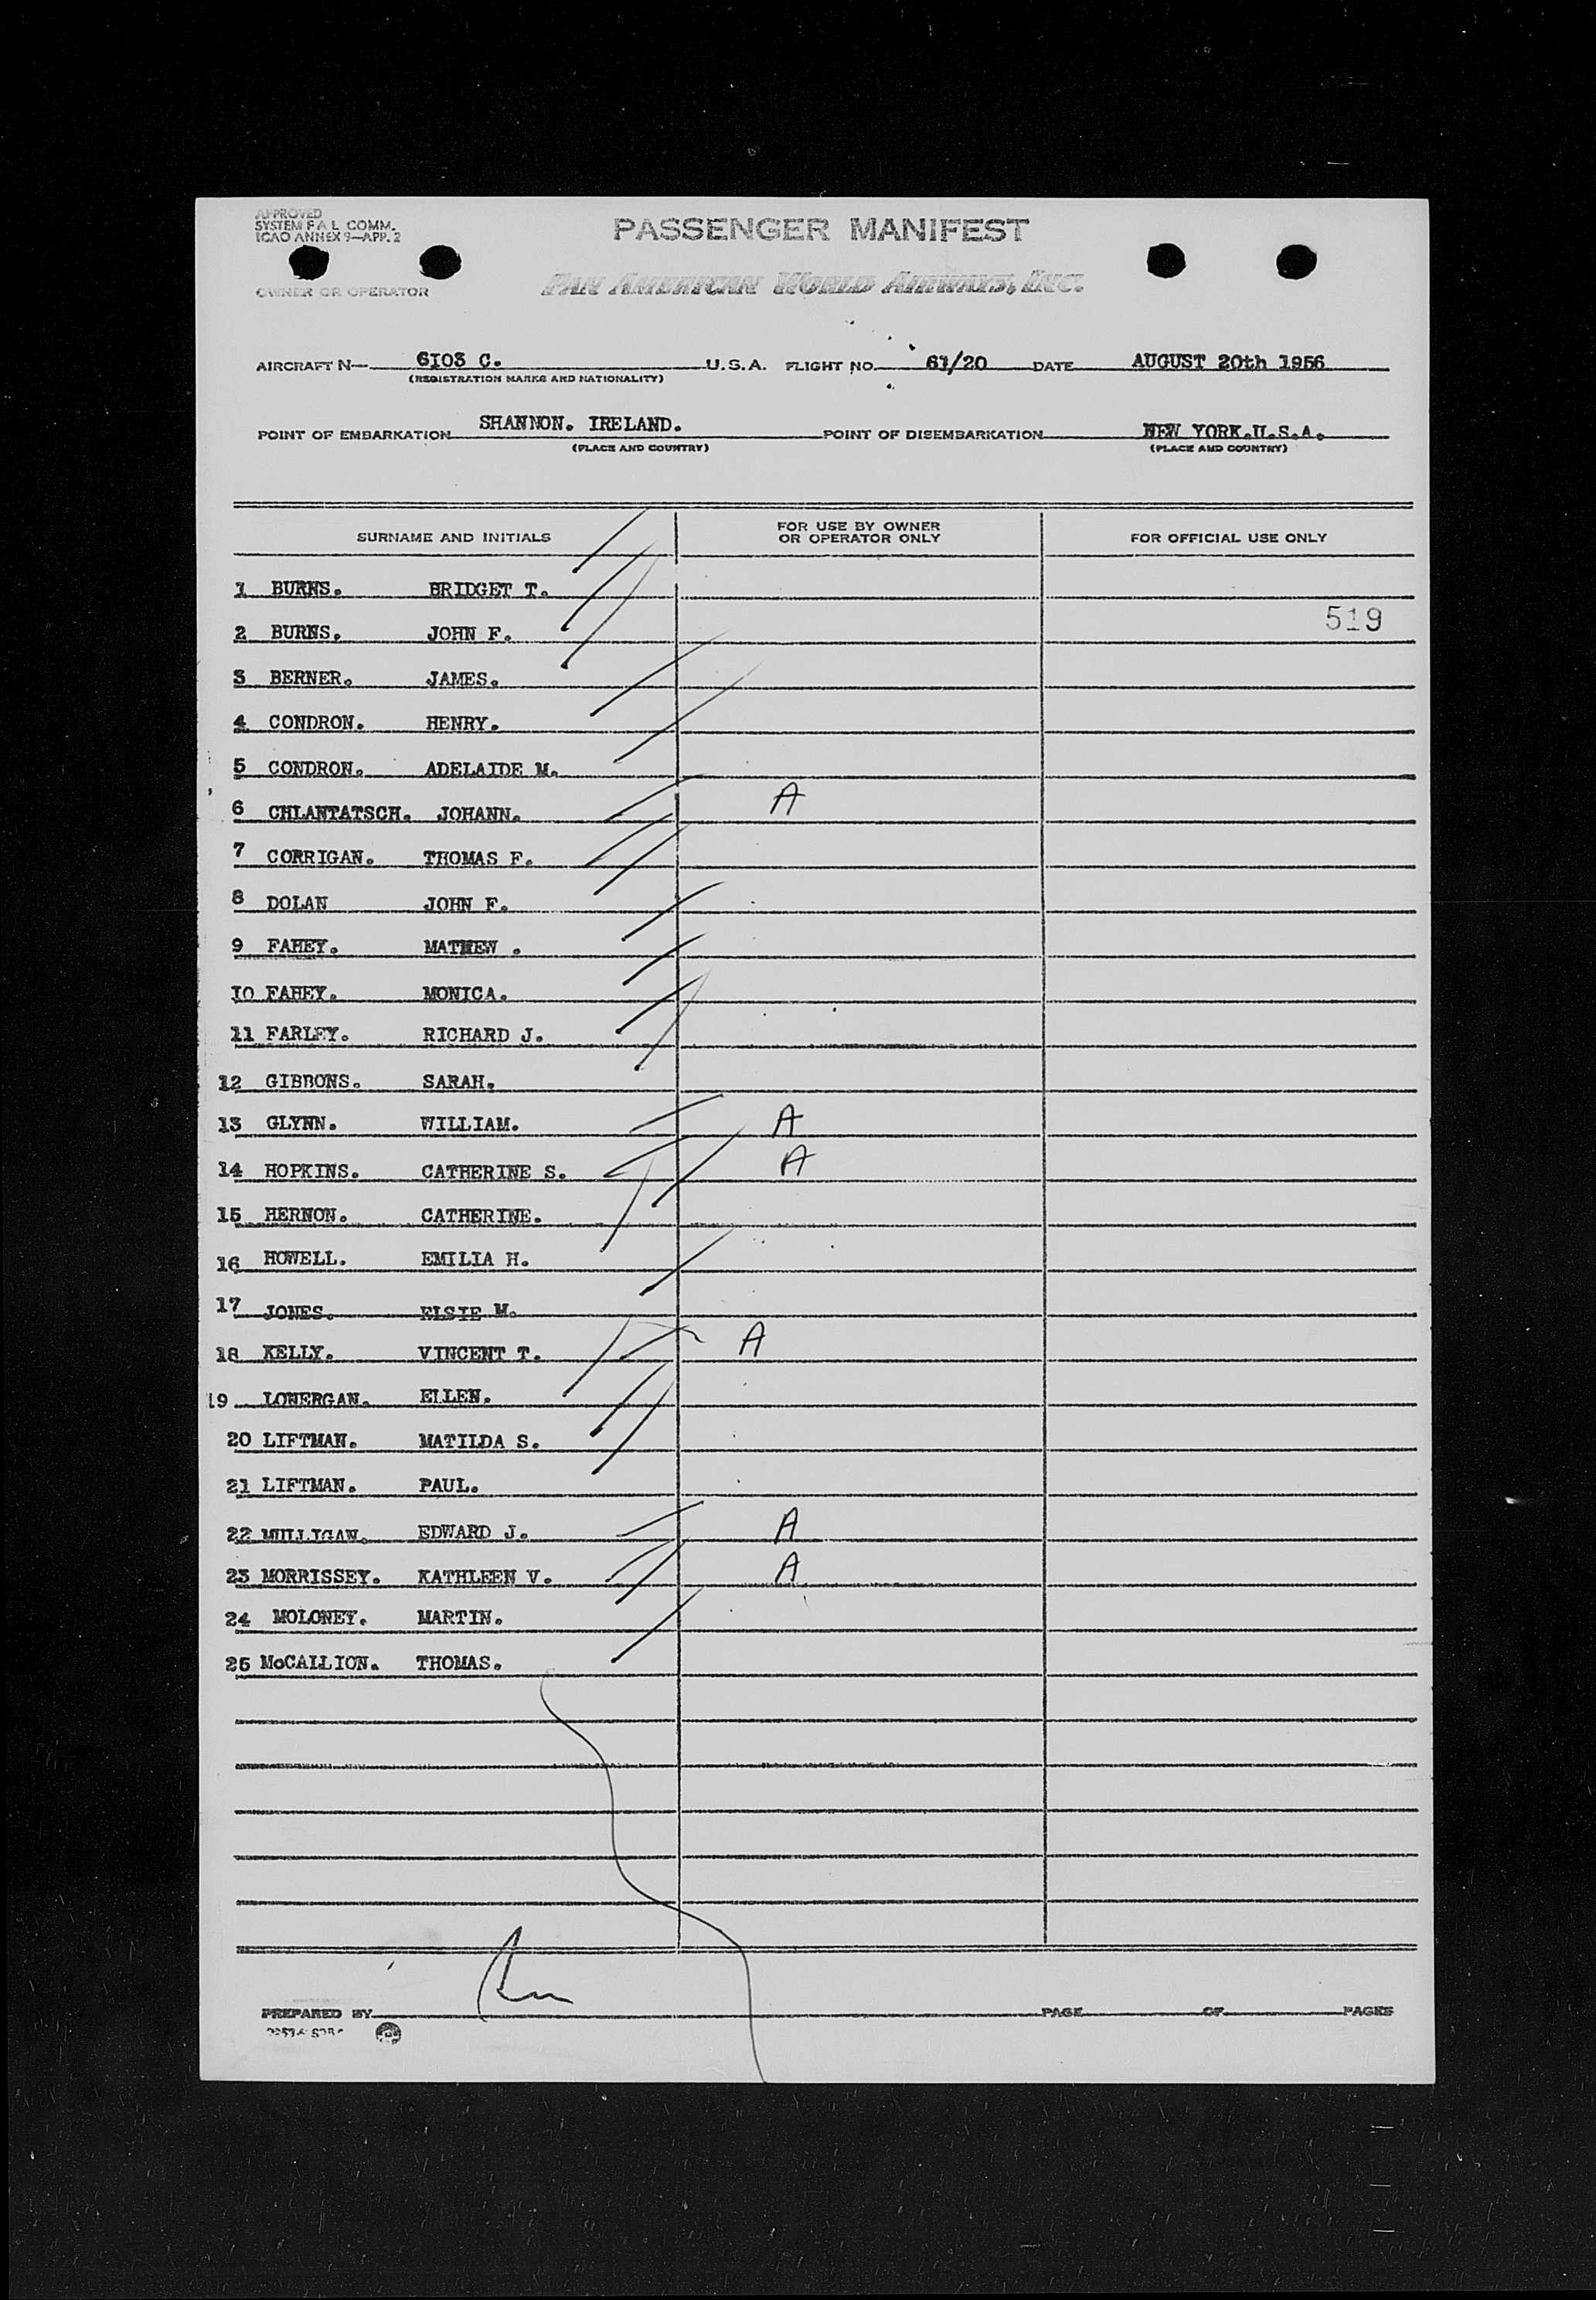 APPROVED
SYSTEM F A L COMM.
ICAO ANNEX 9—APP. 2
PASSENGER MANIFEST
OWNER OR OPERATOR
PAN AMERICAN WORLD AIRWAYS, INC.
AIRCRAFT N— 6103 C. U.S.A. FLIGHT NO. 61/20 DATE AUGUST 20th 1956
(REGISTRATION MARKS AND NATIONALITY)
POINT OF EMBARKATION SHANNON. IRELAND. POINT OF DISEMBARKATION NEW YORK.U.S.A.
(PLACE AND COUNTRY) (PLACE AND COUNTRY)
SURNAME AND INITIALS FOR USE BY OWNER OR OPERATOR ONLY FOR OFFICIAL USE ONLY
1 BURNS. BRIDGET T.
519
2 BURNS. JOHN F.
3 BERNER. JAMES.
4 CONDRON. HENRY.
5 CONDRON. ADELAIDE M.
6 CHLANTATSCH. JOHANN. A
7 CORRIGAN. THOMAS F.
8 DOLAN JOHN F.
9 FAHEY. MATHEW .
10 FAHEY. MONICA.
11 FARLEY. RICHARD J.
12 GIBBONS. SARAH.
13 GLYNN. WILLIAM. A
14 HOPKINS. CATHERINE S. A
15 HERNON. CATHERINE.
16 HOWELL. EMILIA H.
17 JONES. ELSIE M.
18 KELLY. VINCENT T. A
19 LONERGAN. ELLEN.
20 LIFTMAN. MATILDA S.
21 LIFTMAN. PAUL.
22 MULLIGAN. EDWARD J. A
23 MORRISSEY. KATHLEEN V. A
24 MOLONEY. MARTIN.
25 McCALLION. THOMAS.
PREPARED BY PAGE OF PAGES